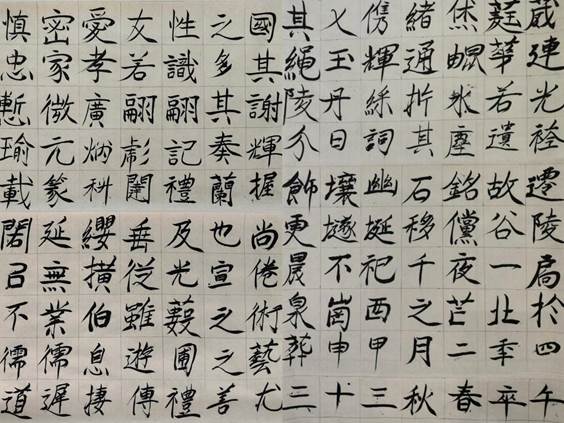 尤善禮傳捿遲道
藝之圃遊息儒儒
術之藪雖伯業不
倦宣光從撗無召
尚也及垂纓延閣
握蘭禮闥科篆載
輝奏記彪炳元瑜
謝其翮翩廣微慙
其多識若孝家忠
國之性友愛密慎
午卒春秋三十三
四年二月甲申葬
於北芒之西崗泉
局一夜千祀不晨
陵谷儻移埏邃更
遷故銘石幽壤飾
遺塵其詞日分
光若氷折綵丹陵
連華皝通輝玉繩
葳莛烋緒儁乂其